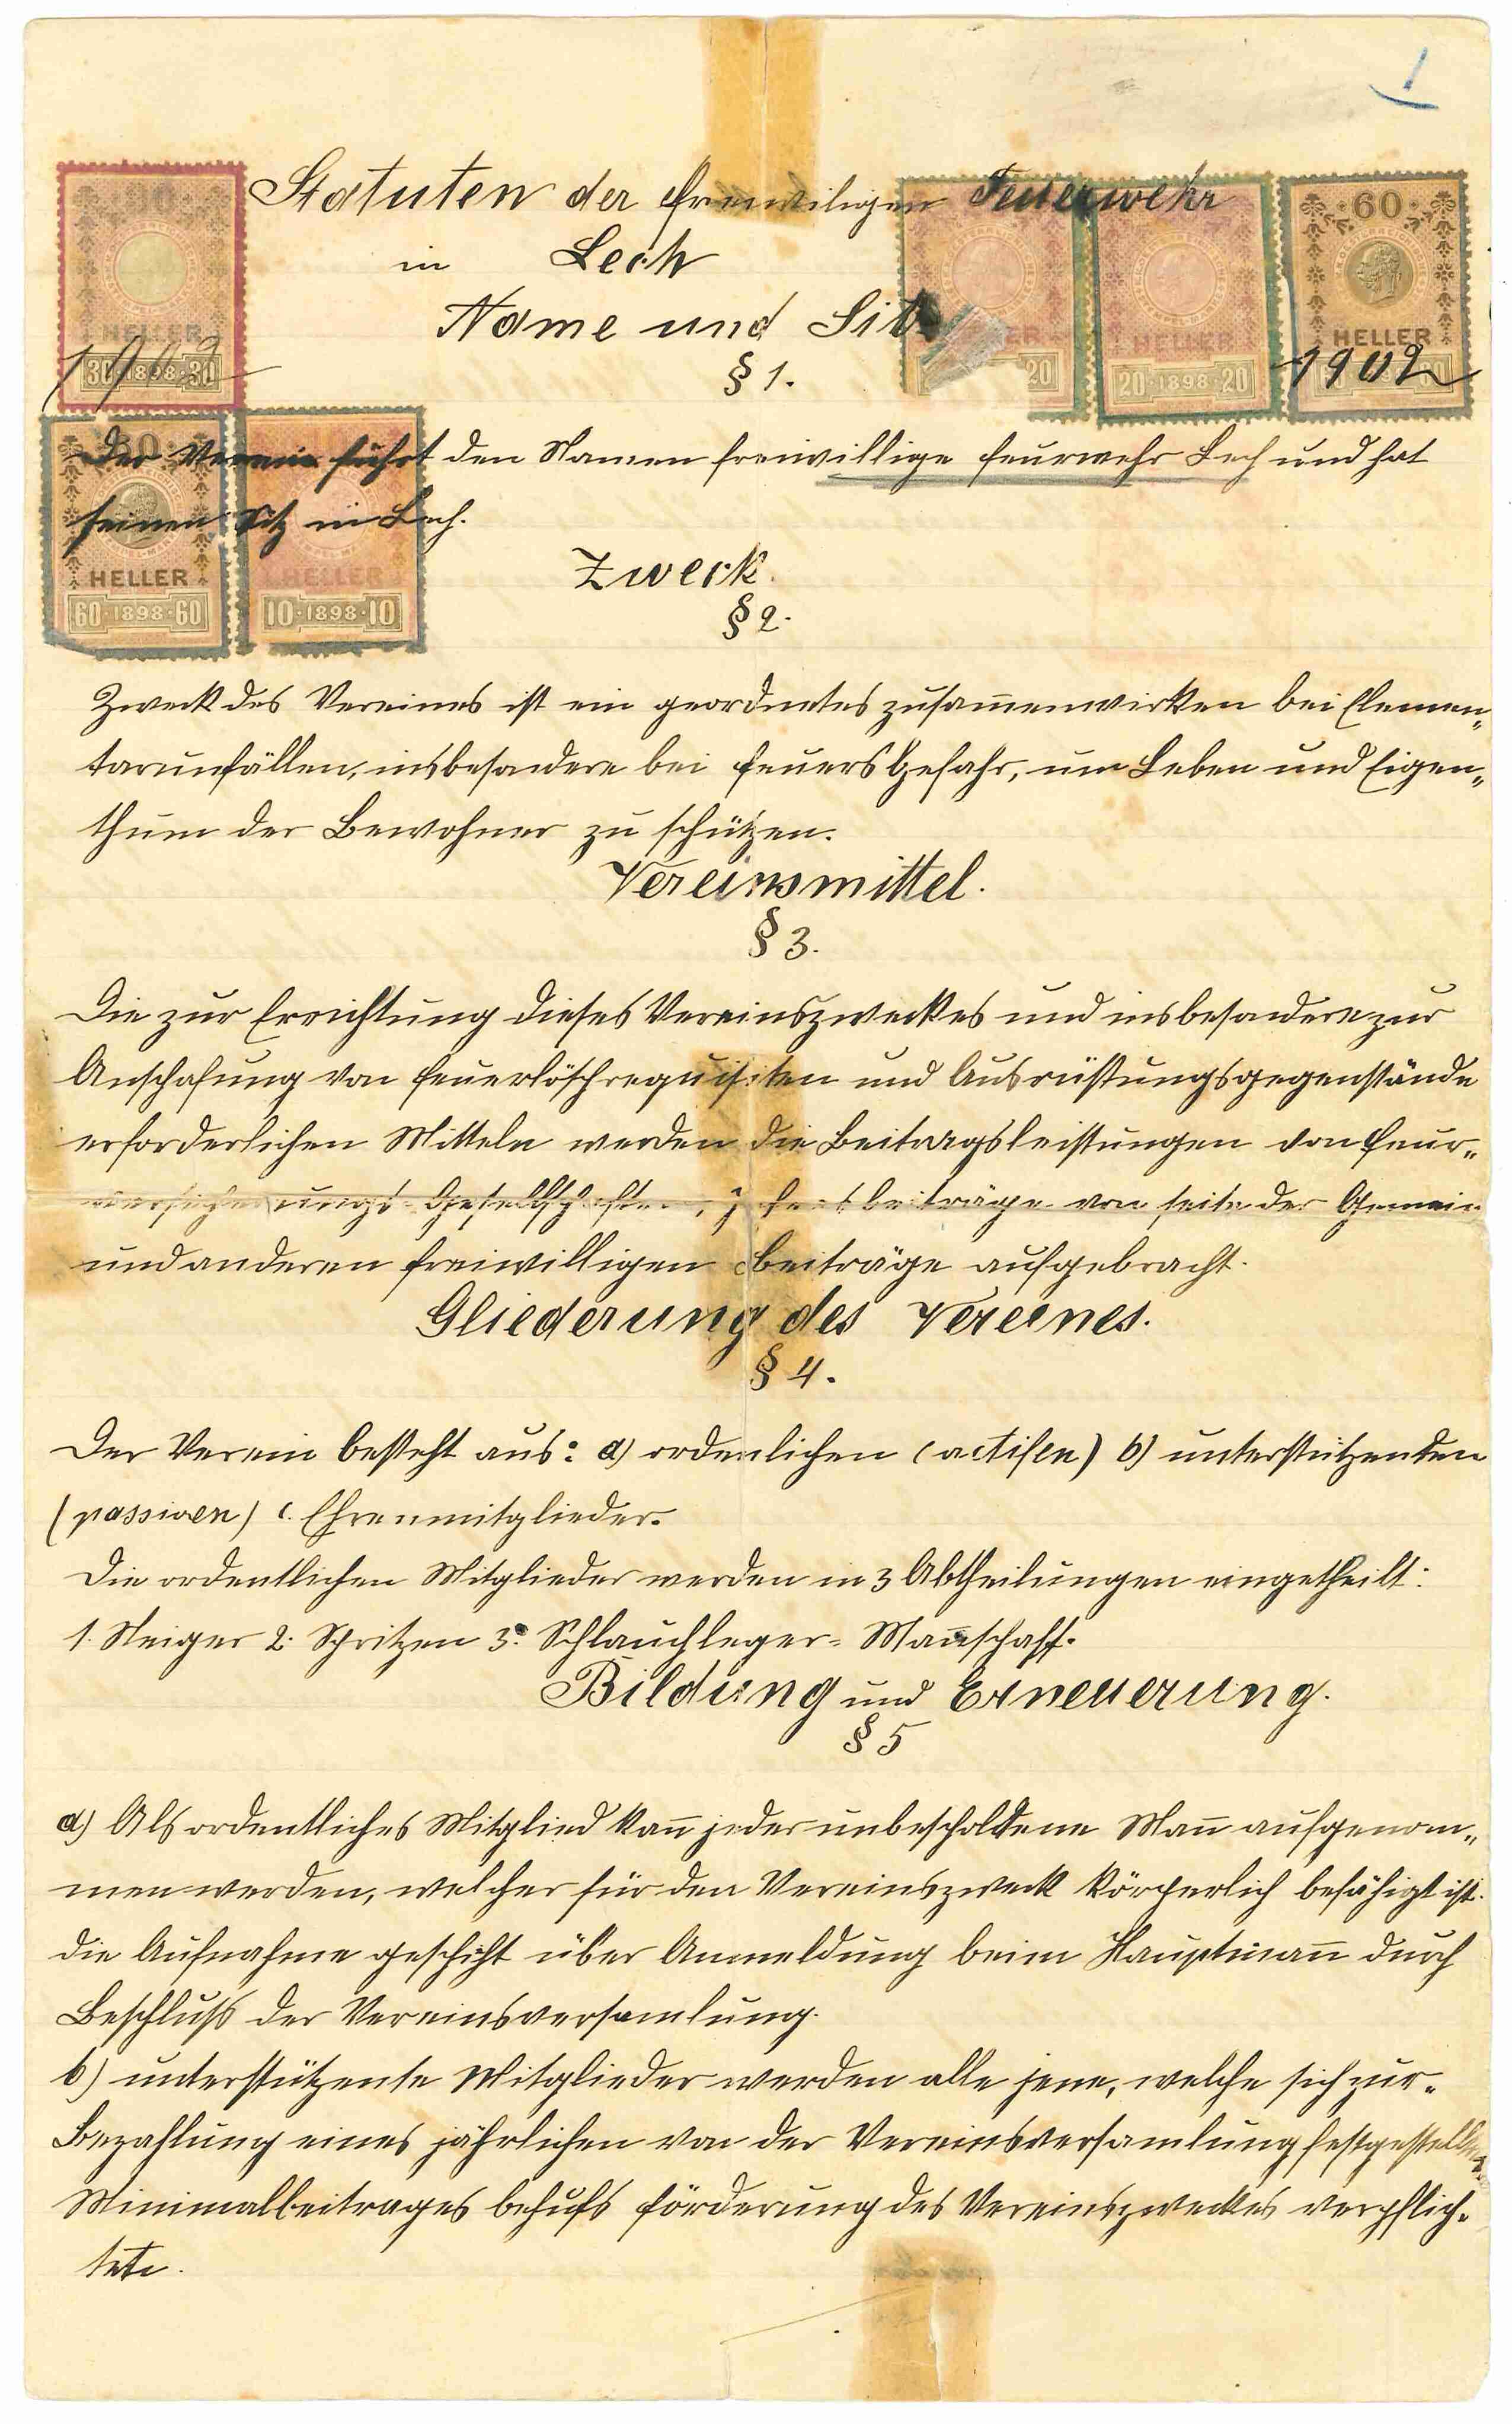 1
Statuten der freiwiligen Feuerwehr
in Lech
Name und Sitz
§ 1.
HELLER
30·1898·30
1902
HELLER
20
HELLER
20·1898·20
60
HELLER
1902
Der Verein führt den Namen freiwillige Feurwehr Lech und hat
seinen Sitz in Lech.
HELLER
60·1898·60
HELLER
10·1898·10
Zweck.
§ 2.
Zweck des Vereines ist ein geordnetes zusam̅enwirken bei Elemen„
tarunfällen, insbesondere bei Feuers Gefahr, um Leben und Eigen„
thum der Bewohner zu schützen.
Vereinsmittel.
§ 3.
Die zur Errichtung dieses Vereinszweckes und insbesondere zur
Anschafung von Feuerlöschrequisiten und Ausrüstungsgegenstände
erforderlichen Mitteln werden die Beitragsleistungen von Feur„
versicherungs-Gesellschaften, beiträge von seite der Gemein
und anderen freiwilligen Beiträge aufgebracht.
Gliederung des Vereines.
§ 4.
Der Verein besteht aus: a) ordenlichen (actifen) b) unterstützenden
(passiven) c. Ehrenmitglieder.
Die ordentlichen Mitglieder werden in 3 Abtheilungen eingetheilt:
1. Steiger 2. Spritzen 3. Schlauchleger= Man̅schaft.
Bildung und Erneuerung.
§ 5
a) Als ordentliches Mitglied kan̅ jeder unbescholdtene Man̅ aufgenom„
men werden, welcher für den Vereinszweck körperlich befähigt ist.
die Aufnahme geschiht über Anmeldung beim Hauptman̅ durch
Beschluß der Vereinsversamlung.
b) unterstützente Mitglieder werden alle jene, welche sich zur
Bezahlung eines jährlichen von der Vereinsversamlung festgestellten
Minimalbeitrages behufs förderung des Vereinszweckes verpflich„
tete.